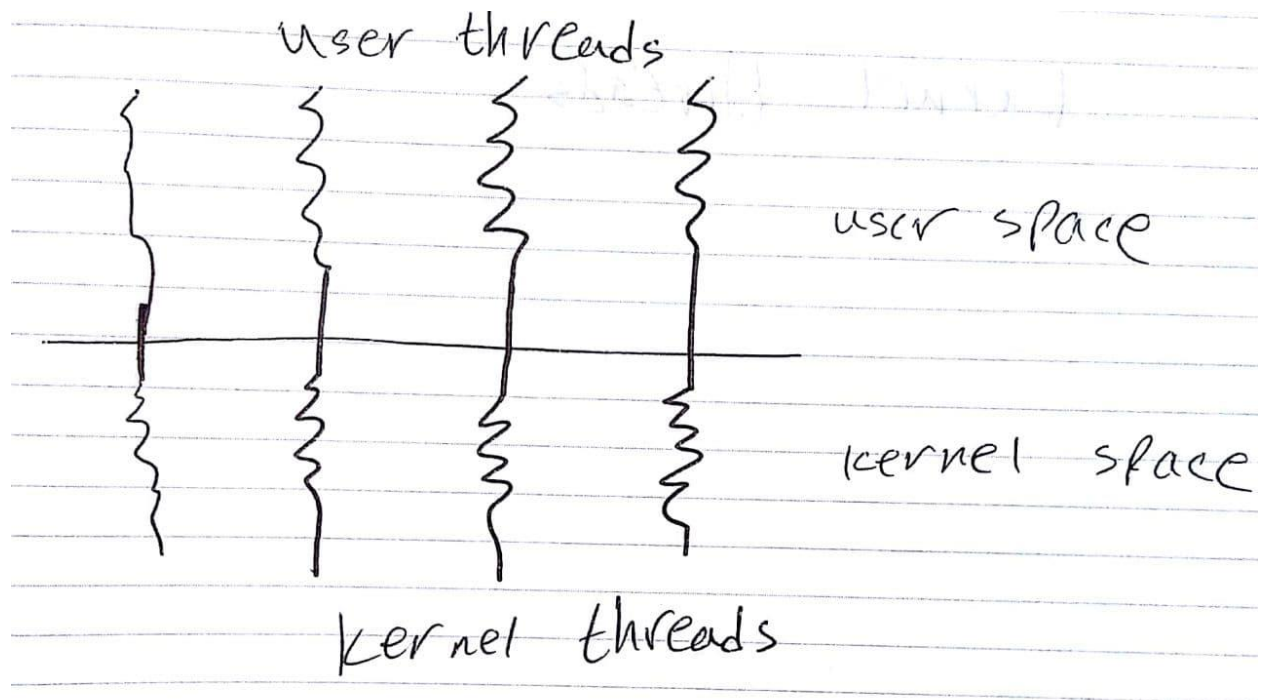 user threads
user space
kernel space
kernel threads